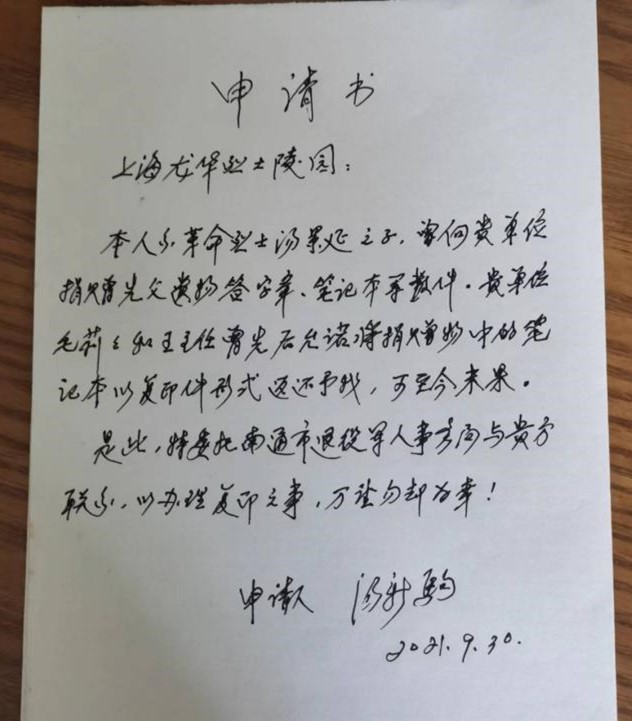 申请书
上海龙华烈士陵园：
本人系革命烈士汤景延之子，曾向贵单位
捐赠先父遗物签字章、笔记本等数件。贵单位
毛莉莉和王主任曾先后允诺将捐赠物中的笔
记本以复印件形式返还予我，可至今未果。
是此，特委托南通市退役军人事务局与贵方
联系，以办理复印之事，万望勿却为幸！
申请人 汤新驹
2021.9.30.